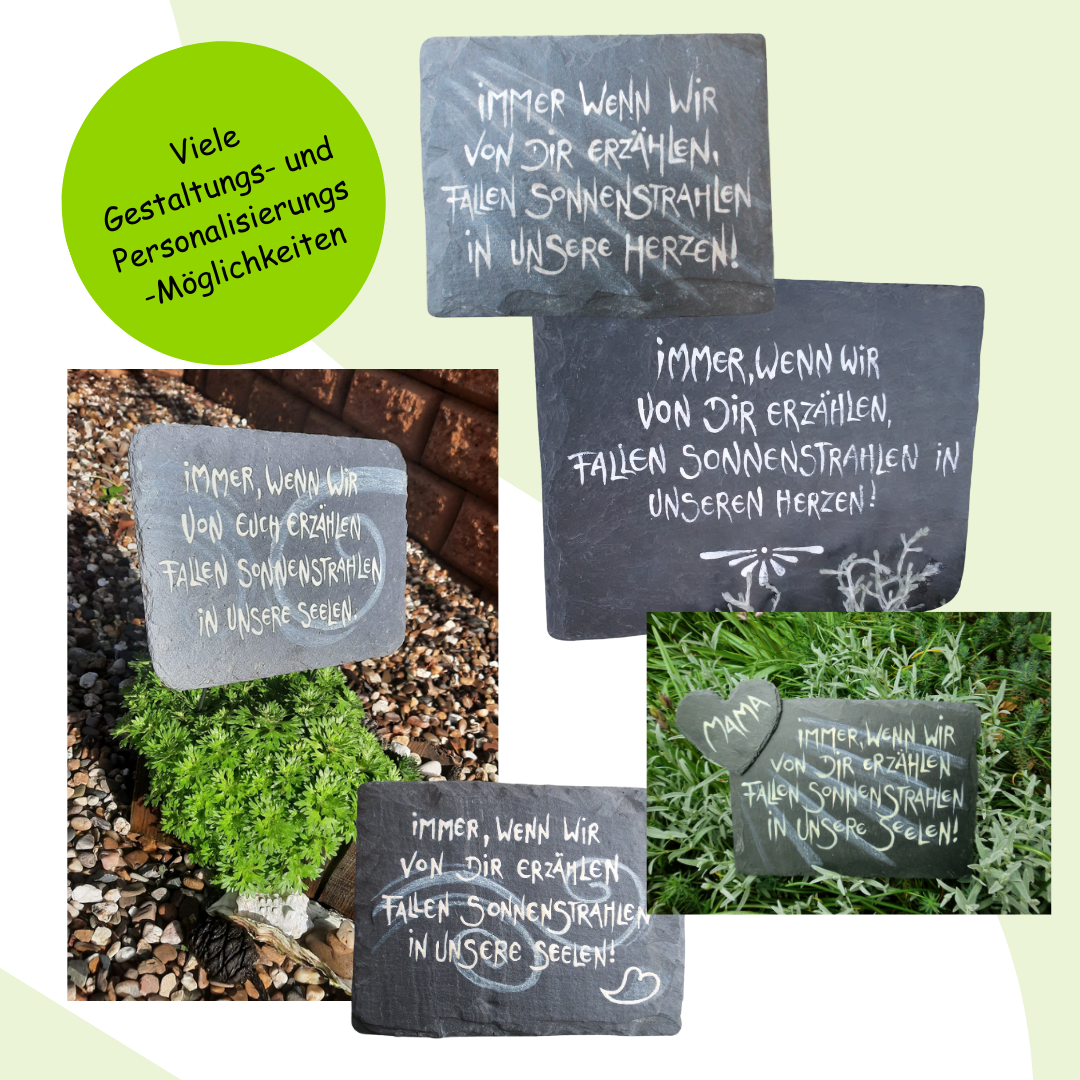 Viele
Gestaltungs- und
Personalisierungs
-Möglichkeiten
IMMER WENN WIR
VON DIR ERZÄHLEN,
FALLEN SONNENSTRAHLEN
IN UNSERE HERZEN!
IMMER, WENN WIR
VON DIR ERZÄHLEN,
FALLEN SONNENSTRAHLEN IN
UNSEREN HERZEN!
IMMER, WENN WIR
VON EUCH ERZÄHLEN
FALLEN SONNENSTRAHLEN
IN UNSERE SEELEN.
MAMA
IMMER, WENN WIR
VON DIR ERZÄHLEN
FALLEN SONNENSTRAHLEN
IN UNSERE SEELEN!
IMMER, WENN WIR
VON DIR ERZÄHLEN
FALLEN SONNENSTRAHLEN
IN UNSERE SEELEN!